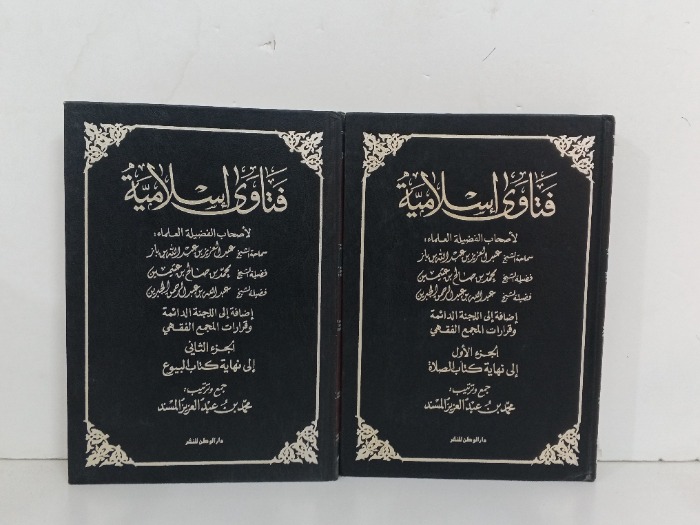 فتاوى إسلامية
لأصحاب الفضيلة العلماء:
سماحة الشيخ عبد العزيز بن عبد الله بن باز
فضيلة الشيخ محمد بن صالح بن عثيمين
فضيلة الشيخ عبد الله بن عبد الرحمن الجبرين
إضافة إلى اللجنة الدائمة
وقرارات المجمع الفقهي
الجزء الأول
إلى نهاية كتاب الصلاة
جمع وترتيب:
محمد بن عبد العزيز المسند
دار الوطن للنشر
فتاوى إسلامية
لأصحاب الفضيلة العلماء:
سماحة الشيخ عبد العزيز بن عبد الله بن باز
فضيلة الشيخ محمد بن صالح بن عثيمين
فضيلة الشيخ عبد الله بن عبد الرحمن الجبرين
إضافة إلى اللجنة الدائمة
وقرارات المجمع الفقهي
الجزء الثاني
إلى نهاية كتاب البيوع
جمع وترتيب:
محمد بن عبد العزيز المسند
دار الوطن للنشر